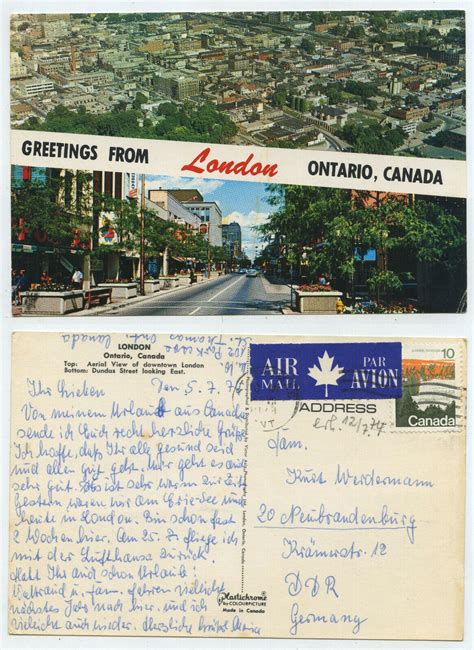 GREETINGS FROM London ONTARIO, CANADA
LONDON
Ontario, Canada
Top: Aerial View of downtown London
Bottom: Dundas Street looking East.
St. Thomas Ont. Canada
Ihr Lieben den 5.7.77
Von meinem Urlaub aus Canada
sende ich Euch recht herzliche Grüße
Ich hoffe, daß Ihr alle gesund seid
und alles gut geht. Mir geht es auch
sehr gut. Es ist sehr warm zur Zeit
Gestern waren wir am Eriesee und
heute in London. Bin schon fast
2 Wochen hier. Am 25.7. fliege ich
mit der Lufthansa zurück.
Habt Ihr auch schon Urlaub?
Waltraud u. Fam. fahren vielleicht
nächstes Jahr nach hier und ich
vielleicht auch wieder. Herzliche Grüße
Plastichrome
by COLOURPICTURE
Made in Canada
AIR MAIL
PAR AVION
10
Canada
ADDRESS
erh. 12/7.77
Fam.
Kurt Werdermann
20 Neubrandenburg
Krämerstr. 12
DDR
Germany